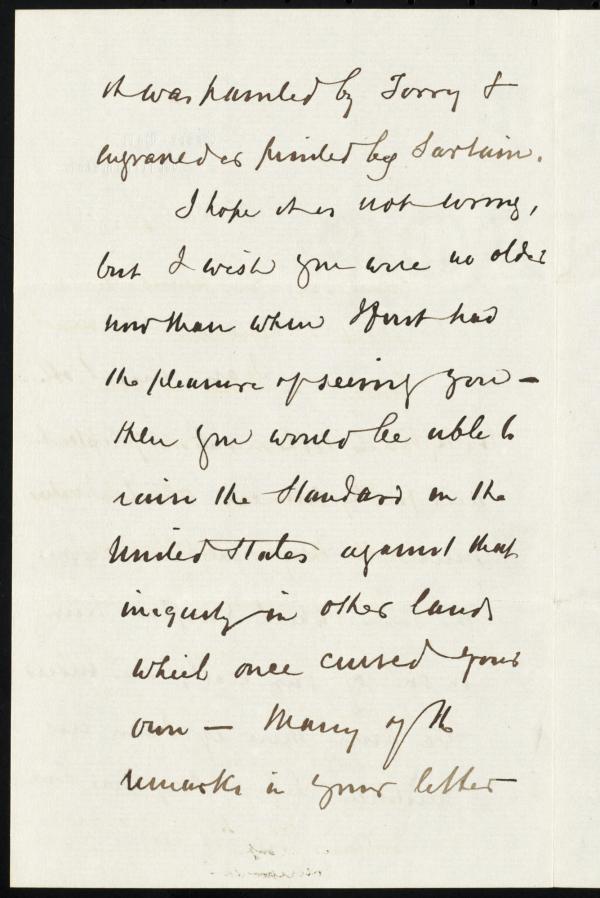 it was painted by Torry &
engraved or printed by Sartain.
I hope it is not wrong,
but I wish you were no older
now than when I first had
the pleasure of seeing you —
then you would be able to
raise the Standard in the
United States against that
iniquity in other lands
which once cursed your
own — Many of the
remarks in your letter